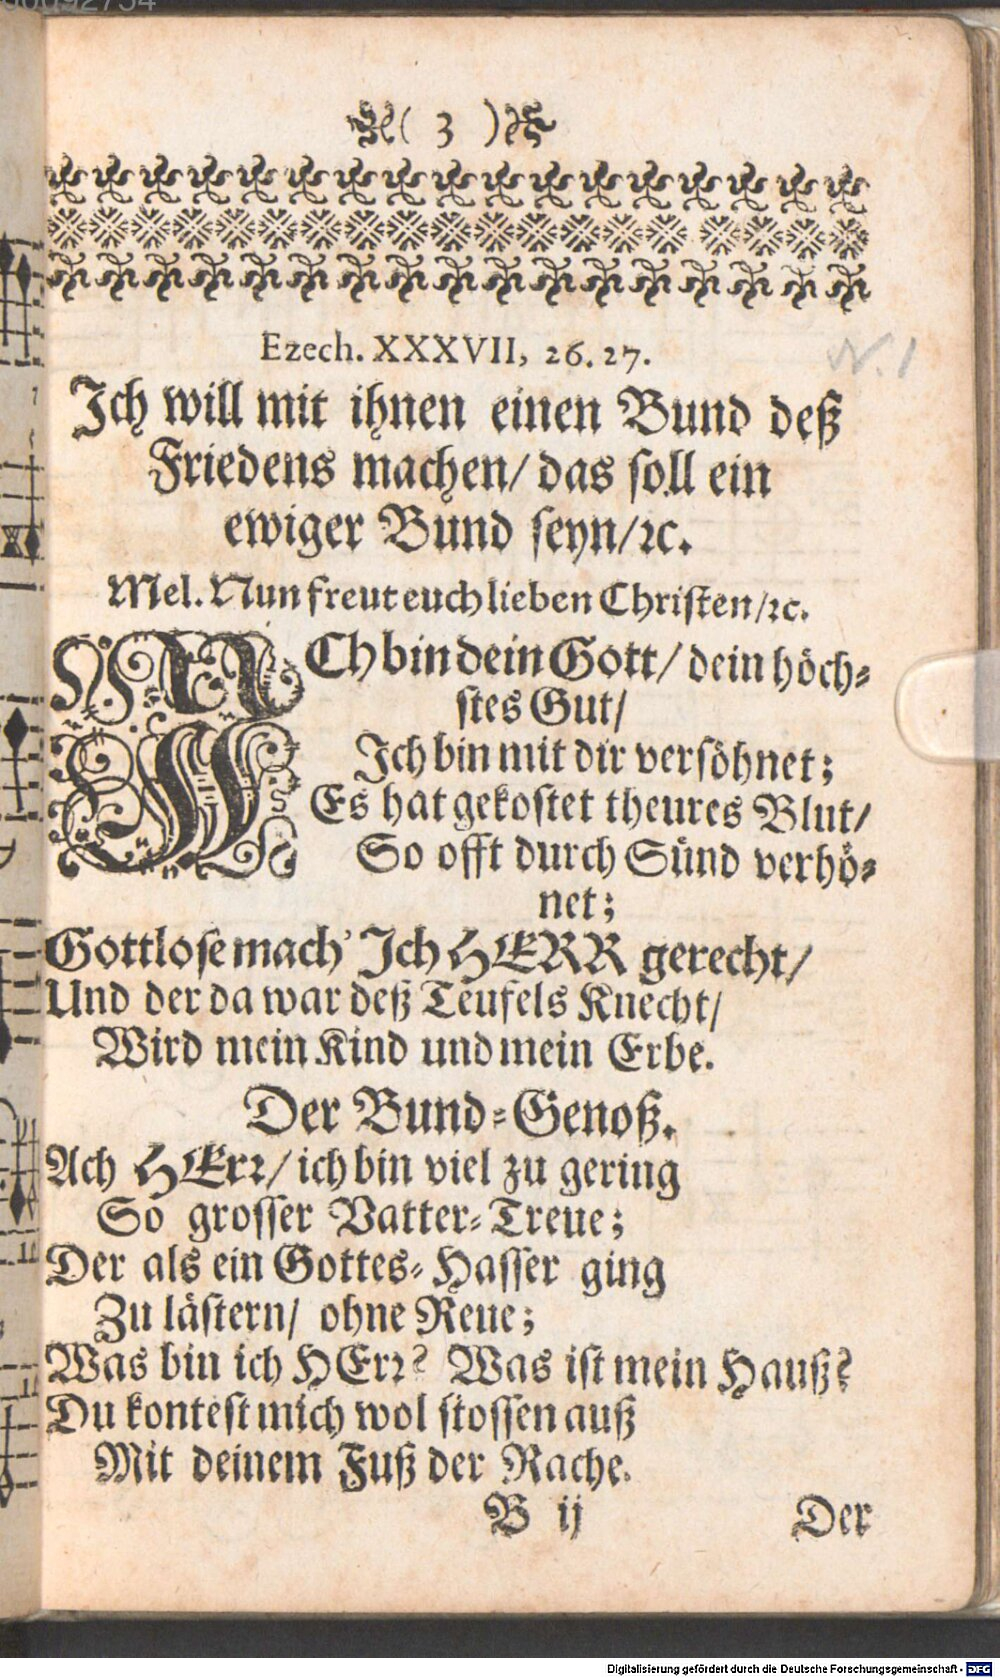 ( 3 )
Ezech. XXXVII, 26. 27.
N. 1
Ich will mit ihnen einen Bund deß
Friedens machen/ das soll ein
ewiger Bund seyn/ꝛc.
Mel. Nun freut euch lieben Christen/ꝛc.
ICh bin dein Gott/ dein höch⸗
stes Gut/
Ich bin mit dir versöhnet;
Es hat gekostet theures Blut/
So offt durch Sünd verhö⸗
net;
Gottlose mach' Ich HERR gerecht/
Und der da war deß Teufels Knecht/
Wird mein Kind und mein Erbe.
Der Bund⸗Genoß.
Ach HErꝛ/ ich bin viel zu gering
So grosser Vatter⸗Treue;
Der als ein Gottes⸗Hasser ging
Zu lästern/ ohne Reue;
Was bin ich HErꝛ? Was ist mein Hauß?
Du kontest mich wol stossen auß
Mit deinem Fuß der Rache.
B ij Der
Digitalisierung gefördert durch die Deutsche Forschungsgemeinschaft - DFG